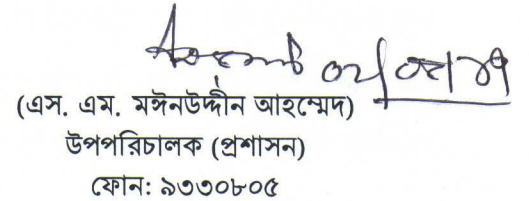 (এস. এম. মঈনউদ্দীন আহম্মেদ)
উপপরিচালক (প্রশাসন)
ফোন: ৯৩৩০৮০৫